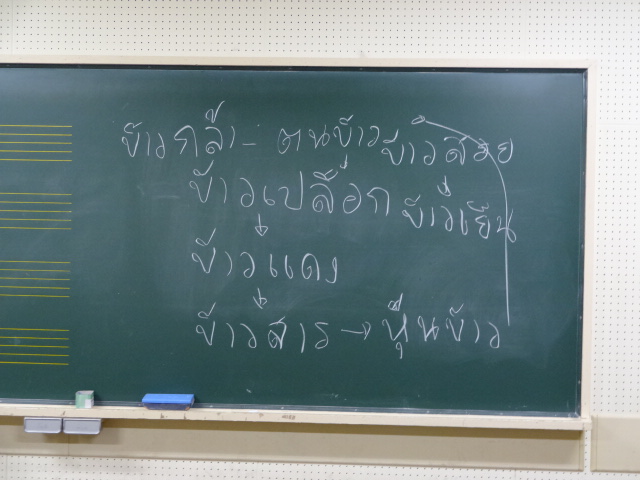 ข้าวกล้า - ตนข้าว ข้าวสวย
ข้าวเปลือก ข้าวเย็น
ข้าวแดง
ข้าวสาร → หุ่นข้าว